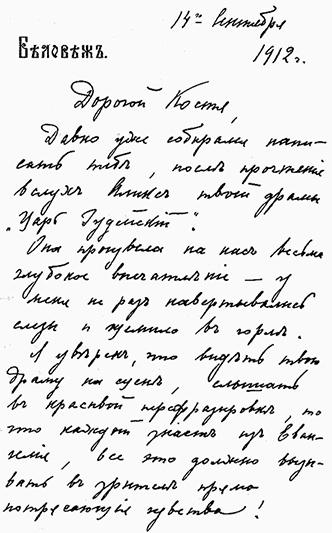 14го Сентября
Бѣловѣжъ.
1912 г.
Дорогой Костя,
Давно уже собирался напи-
сать тебѣ, послѣ прочтенія
вслухъ Аликсъ твоей драмы
„Царь Іудейскій".
Она произвела на насъ весьма
глубокое впечатлѣніе — у
меня не разъ навертывались
слезы и щемило въ горлѣ.
Я увѣренъ, что видѣть твою
драму на сценѣ, слышать
въ красивой перефразировкѣ, то
что каждый знаетъ изъ Еван-
гелія, все это должно вызы-
вать въ зрителѣ прямо
потрясающія чувства!